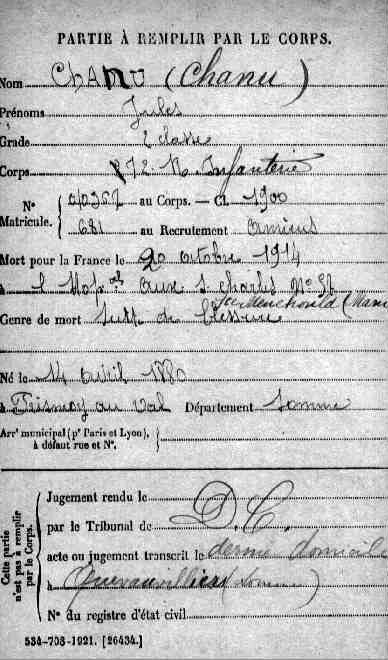 PARTIE À REMPLIR PAR LE CORPS.
Nom CHANU (Chanu)
Prénoms Jules
Grade 2 classe
Corps 72 R. Infanterie
N° Matricule. { au Corps. — Cl. 1900
681 au Recrutement Amiens
Mort pour la France le 20 octobre 1914
à l Hop. aux. S. Charles N°
Ste Menehould (Marne
Genre de mort Suite de blessures
Né le 14 avril 1880
à Frismoy au Val Département Somme
Arr' municipal (p' Paris et Lyon), à défaut rue et N°.
Cette partie n'est pas à remplir par le Corps.
Jugement rendu le
par le Tribunal de D.C.
acte ou jugement transcrit le dernier domicile
à Quevauvillers (Somme)
N° du registre d'état civil
534-708-1921. [26434.]